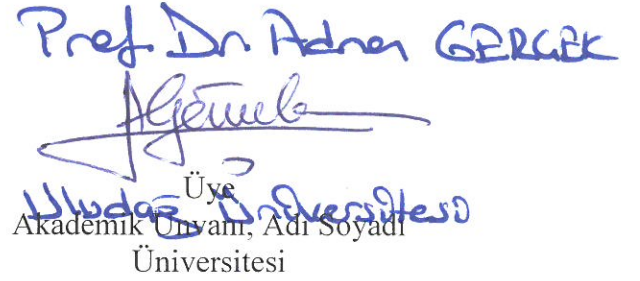 Prof. Dr. Adnan GERÇEK
Üye
Uludağ Üniversitesi
Akademik Ünvanı, Adı Soyadı
Üniversitesi